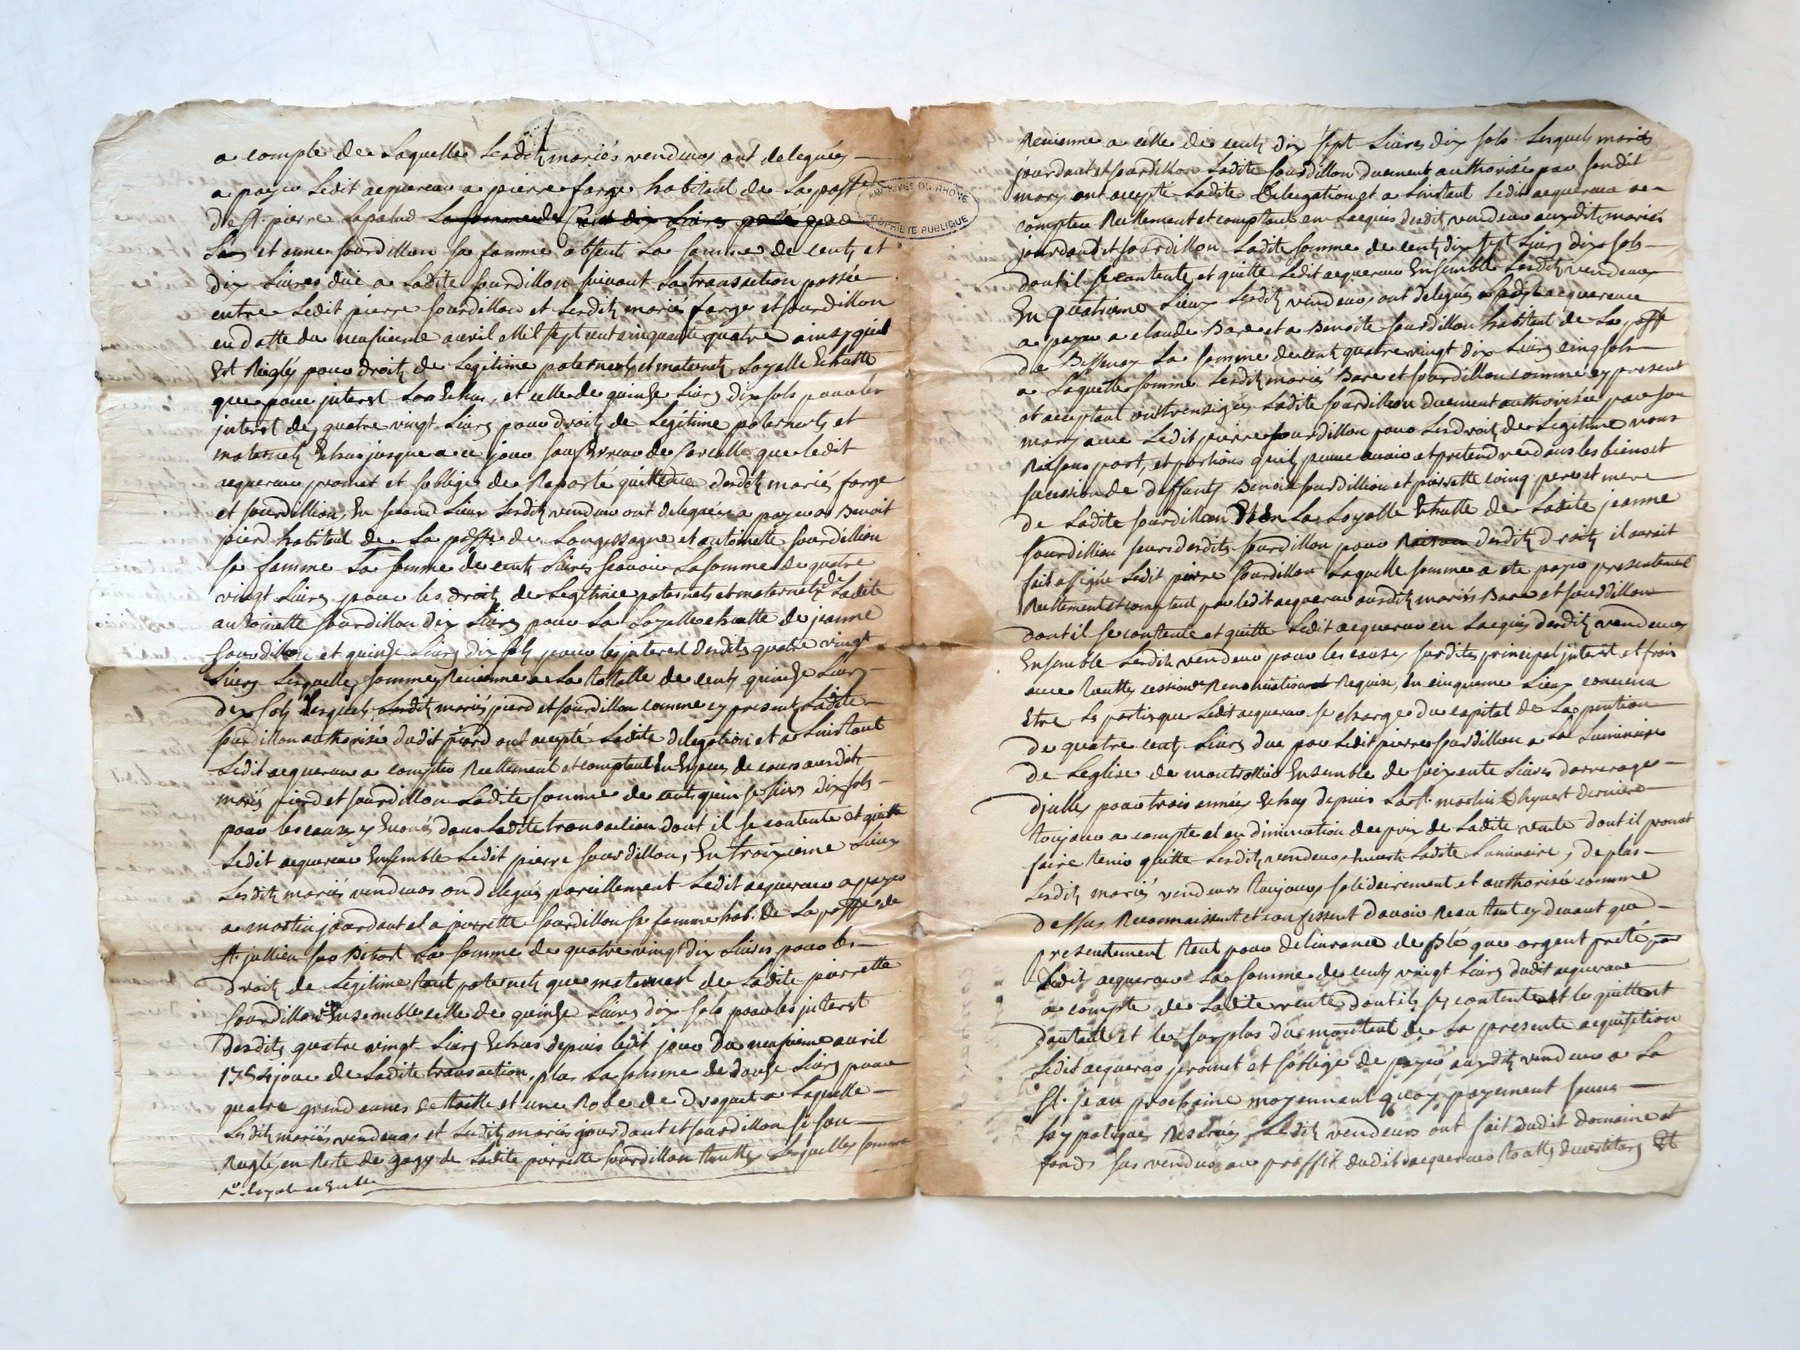 a compte de Laquelle Lesdit mariés vendeurs ont delegués
a payer Ledit acquereur a pierre farge habitant de La pasſe
De st pierre Lapalud La somme de Cent dix Livres
et anne sourdillon sa famme absent La somme de cent et
dix Livres düe a Ladite sourdillon suivant La transaction passée
entre Ledit pierre sourdillon et Lesdit mariés farge et sourdillon
en datte du neufieme avril Mil sept cent cinquante quatre ainsy quil
Est Reiglés pour droit de Legitime paternel et maternel Loyalle Echutte
que pour interest Echus, et celle de quinse Livres dix sols pour les
interest des quatre vingt Livres pour droits de Legitime paternels et
maternels Echus jusque a ce jour que Ledit
acquereur promet et soblige de Raporté quittance desdits mariés farge
et sourdillion, En second Lieu Lesdits vendeurs ont delegués a payer a Benoit
pierd habitant de La pasſe de Longessagne et antoinette sourdillion
sa famme La somme de cent Livres scavoir La somme de quatre
vingt Livres pour les droits de Legitime paternels et maternels de Ladite
antoinette sourdillon dix Livres pour La Loyalle echutte de jeanne
sourdillon et quinse Livres dix sols pour les interest desdits quatre vingt
Livres Lesquelles sommes Revienne a La totalle de cent quinse Livres
dix sols Lesquels Lesdits mariés pierd et sourdillon comme cy present Ladite
sourdillon authorisée dudit pierd ont accepté Ladite delegation et a Linstant
Ledit acquereur a comptée Reellement et comptant En Especes de cours auxdits
mariés pierd et sourdillon Ladite somme de cent quinse Livres dix sols
pour les causes y Enoncés dans Ladite transaction dont il se contente et quitte
Ledit acquereur Ensemble Ledit pierre sourdillon, En troisieme Lieux
Lesdits mariés vendeurs on delegués pareillement Ledit acquereur a payer
a martin jourdant et a pierrette sourdillon sa famme hab. de La pasſe de
st jullien sur Bibost La somme de quatre vingt dix Livres pour les
droits de Légitime tant paternels que maternel de Ladite pierrette
sourdillon Ensemble celle de quinse Livres dix sols pour les interest
desdits quatre vingt Livres Echus depuis Ledit jour du neufvieme avril
1754 jour de Ladite transaction, plus La somme de douse Livres pour
quatre grand aunes de toille et une Robe de Droguet a Laquelle
Lesdits mariés vendeurs et Lesdits mariés jourdant et sourdillon se son
Reglé en Reste de gage de Ladite pierrette sourdillon toutes Lesquelles somme
Revienne a celle de cent dix sept Livres dix sols Lesquels mariés
jourdant et sourdillon Ladite sourdillon duement authorisée par sondit
mary ont accepté Ladite Delegation et a Linstant Ledit acquereur a
comptée Reellement et comptant en Lacquis desdits vendeurs auxdits mariés
jourdant et sourdillon Ladite somme de cent dix sept Livres dix sols
dont il se contente et quitte Ledit acquereur Ensemble Lesdits vendeurs
En quatrieme Lieux Lesdits vendeurs ont delegués Ledit acquereur
a payer a claude Bare et a Benoite sourdillon habitant de La pasſe
de Bessenay La somme de cent quatre vingt dix Livres cinq sols
a Laquelle somme Lesdits mariés Bare et sourdillon comme cy present
et acceptant Ladite sourdillion duement authorisée par son
mary avec Ledit pierre sourdillon pour Les droits de Legitime
Raisons part, et portions quil peuve avoir et pretendre dans les biens et
sucession de deffunts Benoit sourdillion et pierrette Coing pere et mere
de Ladite sourdillon Et En La Loyalle Echutte de Ladite jeanne
sourdillion seurs desdits sourdillon pour Raison desdits droits il aurait
fait assigné Ledit pierre sourdillon Laquelle somme a ete payé presentement
Reellement et comptant par Ledit acquereur auxdits mariés Bare et sourdillon
dont il se contente et quitte Ledit acquereur en Lacquis desdits vendeurs
Ensemble Lesdits vendeurs pour les causes susdites principal interest et frais
avec toutte cession Renonciation et Requise, En cinquieme Lieux convenu
Etre Les parties que Ledit acquereur se charge du capital de La pention
de quatre cent Livres due par Ledit pierre sourdillon a La Luminaire
de Leglise de montrottier Ensemble de soixante Livres darrerages
dicelle pour trois années Echus depuis La st martin Dhyvert derniere
toujours a compte et en diminution du prix de Ladite vente dont il promet
faire tenir quitte Lesdits vendeurs envers Ladite Luminaire; de plus
Lesdits mariés vendeurs toujours solidairement et authorisée comme
dessus Reconnaissent et confessent davoir Reçu tant cy devant que
presentement tant pour delivrance de blé que argent preté par
Ledit acquereur La somme de cent vingt Livres dudit acquereur
a compte de Ladite vente dont ils se contente et le quittent
dautant Et le surplus du montant de La presente acquisition
Ledit acquereur promet et soblige de payer auxdits vendeurs a La
St. jean prochaine moyennant quoy payement sous
hypoteque Reservée Lesdits vendeurs ont fait dudit domaine et
fonds sus vendus au proffit dudit acquereur touttes Et